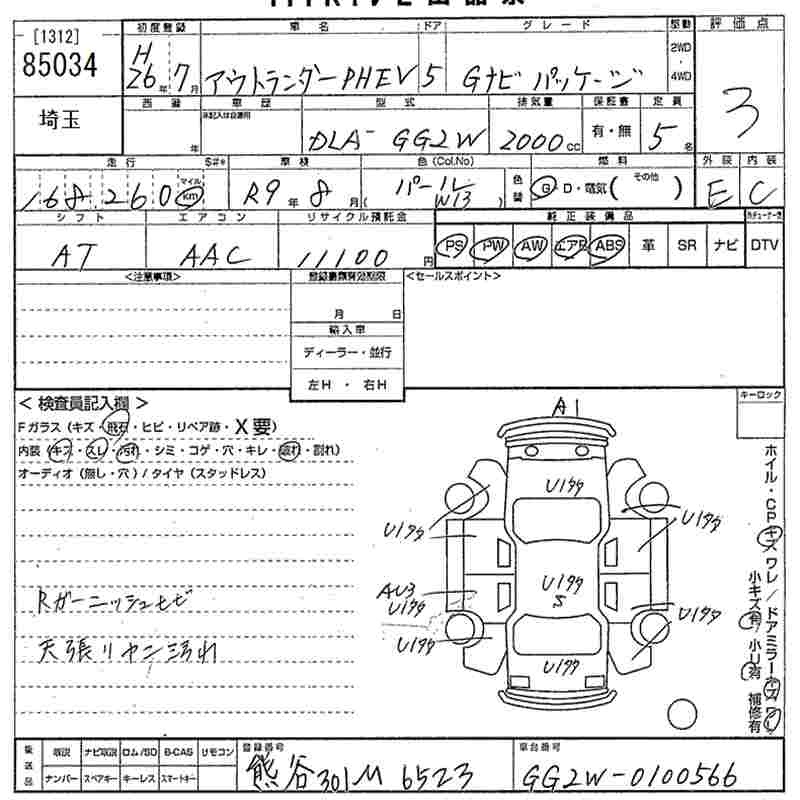 [1312]
85034
埼玉
初度登録
H
26年 7月
車名
アウトランダーPHEV
ドア
5
グレード
Gナビ パッケージ
駆動
2WD
・
4WD
評価点
3
西暦
年
車歴
未記入は自家用
型式
DLA- GG2W
排気量
2000cc
保証書
有・無
定員
5名
走行
168,260
マイル
km
車検
R9年 8月
色 (Col.No)
(パール W13)
色替
燃料
G・D・電気( その他 )
外装 内装
E C
シフト
AT
エアコン
AAC
リサイクル預託金
11100円
純正装備品
PS PW AW エアB ABS 革 SR ナビ DTV
<注意事項>
登録書類有効期限
月 日
輸入車
ディーラー・並行
左H ・ 右H
<セールスポイント>
< 検査員記入欄 >
Fガラス (キズ・飛石・ヒビ・リペア跡・X要)
内装 (キズ・スレ・汚れ・シミ・コゲ・穴・キレ・破れ・割れ)
オーディオ (無し・穴) / タイヤ (スタッドレス)
Rガーニッシュヒビ
天張リヤン汚れ
キーロック
A1
Uｱﾀﾀ
Uｱﾀﾀ
Uｱﾀﾀ
AU3
Uｱﾀﾀ
Uｱﾀﾀ
S
Uｱﾀﾀ
Uｱﾀﾀ
Uｱﾀﾀ
ホイル・CPキズ ワレ / ドアミラーキズ ワレ
小キズ有 小リ有 補修有
後送品
取説 ナビ取説 ロム/SD B-CAS リモコン
ナンバー スペアキー キーレス スマートキー
登録番号
熊谷301M 6523
車台番号
GG2W-0100566